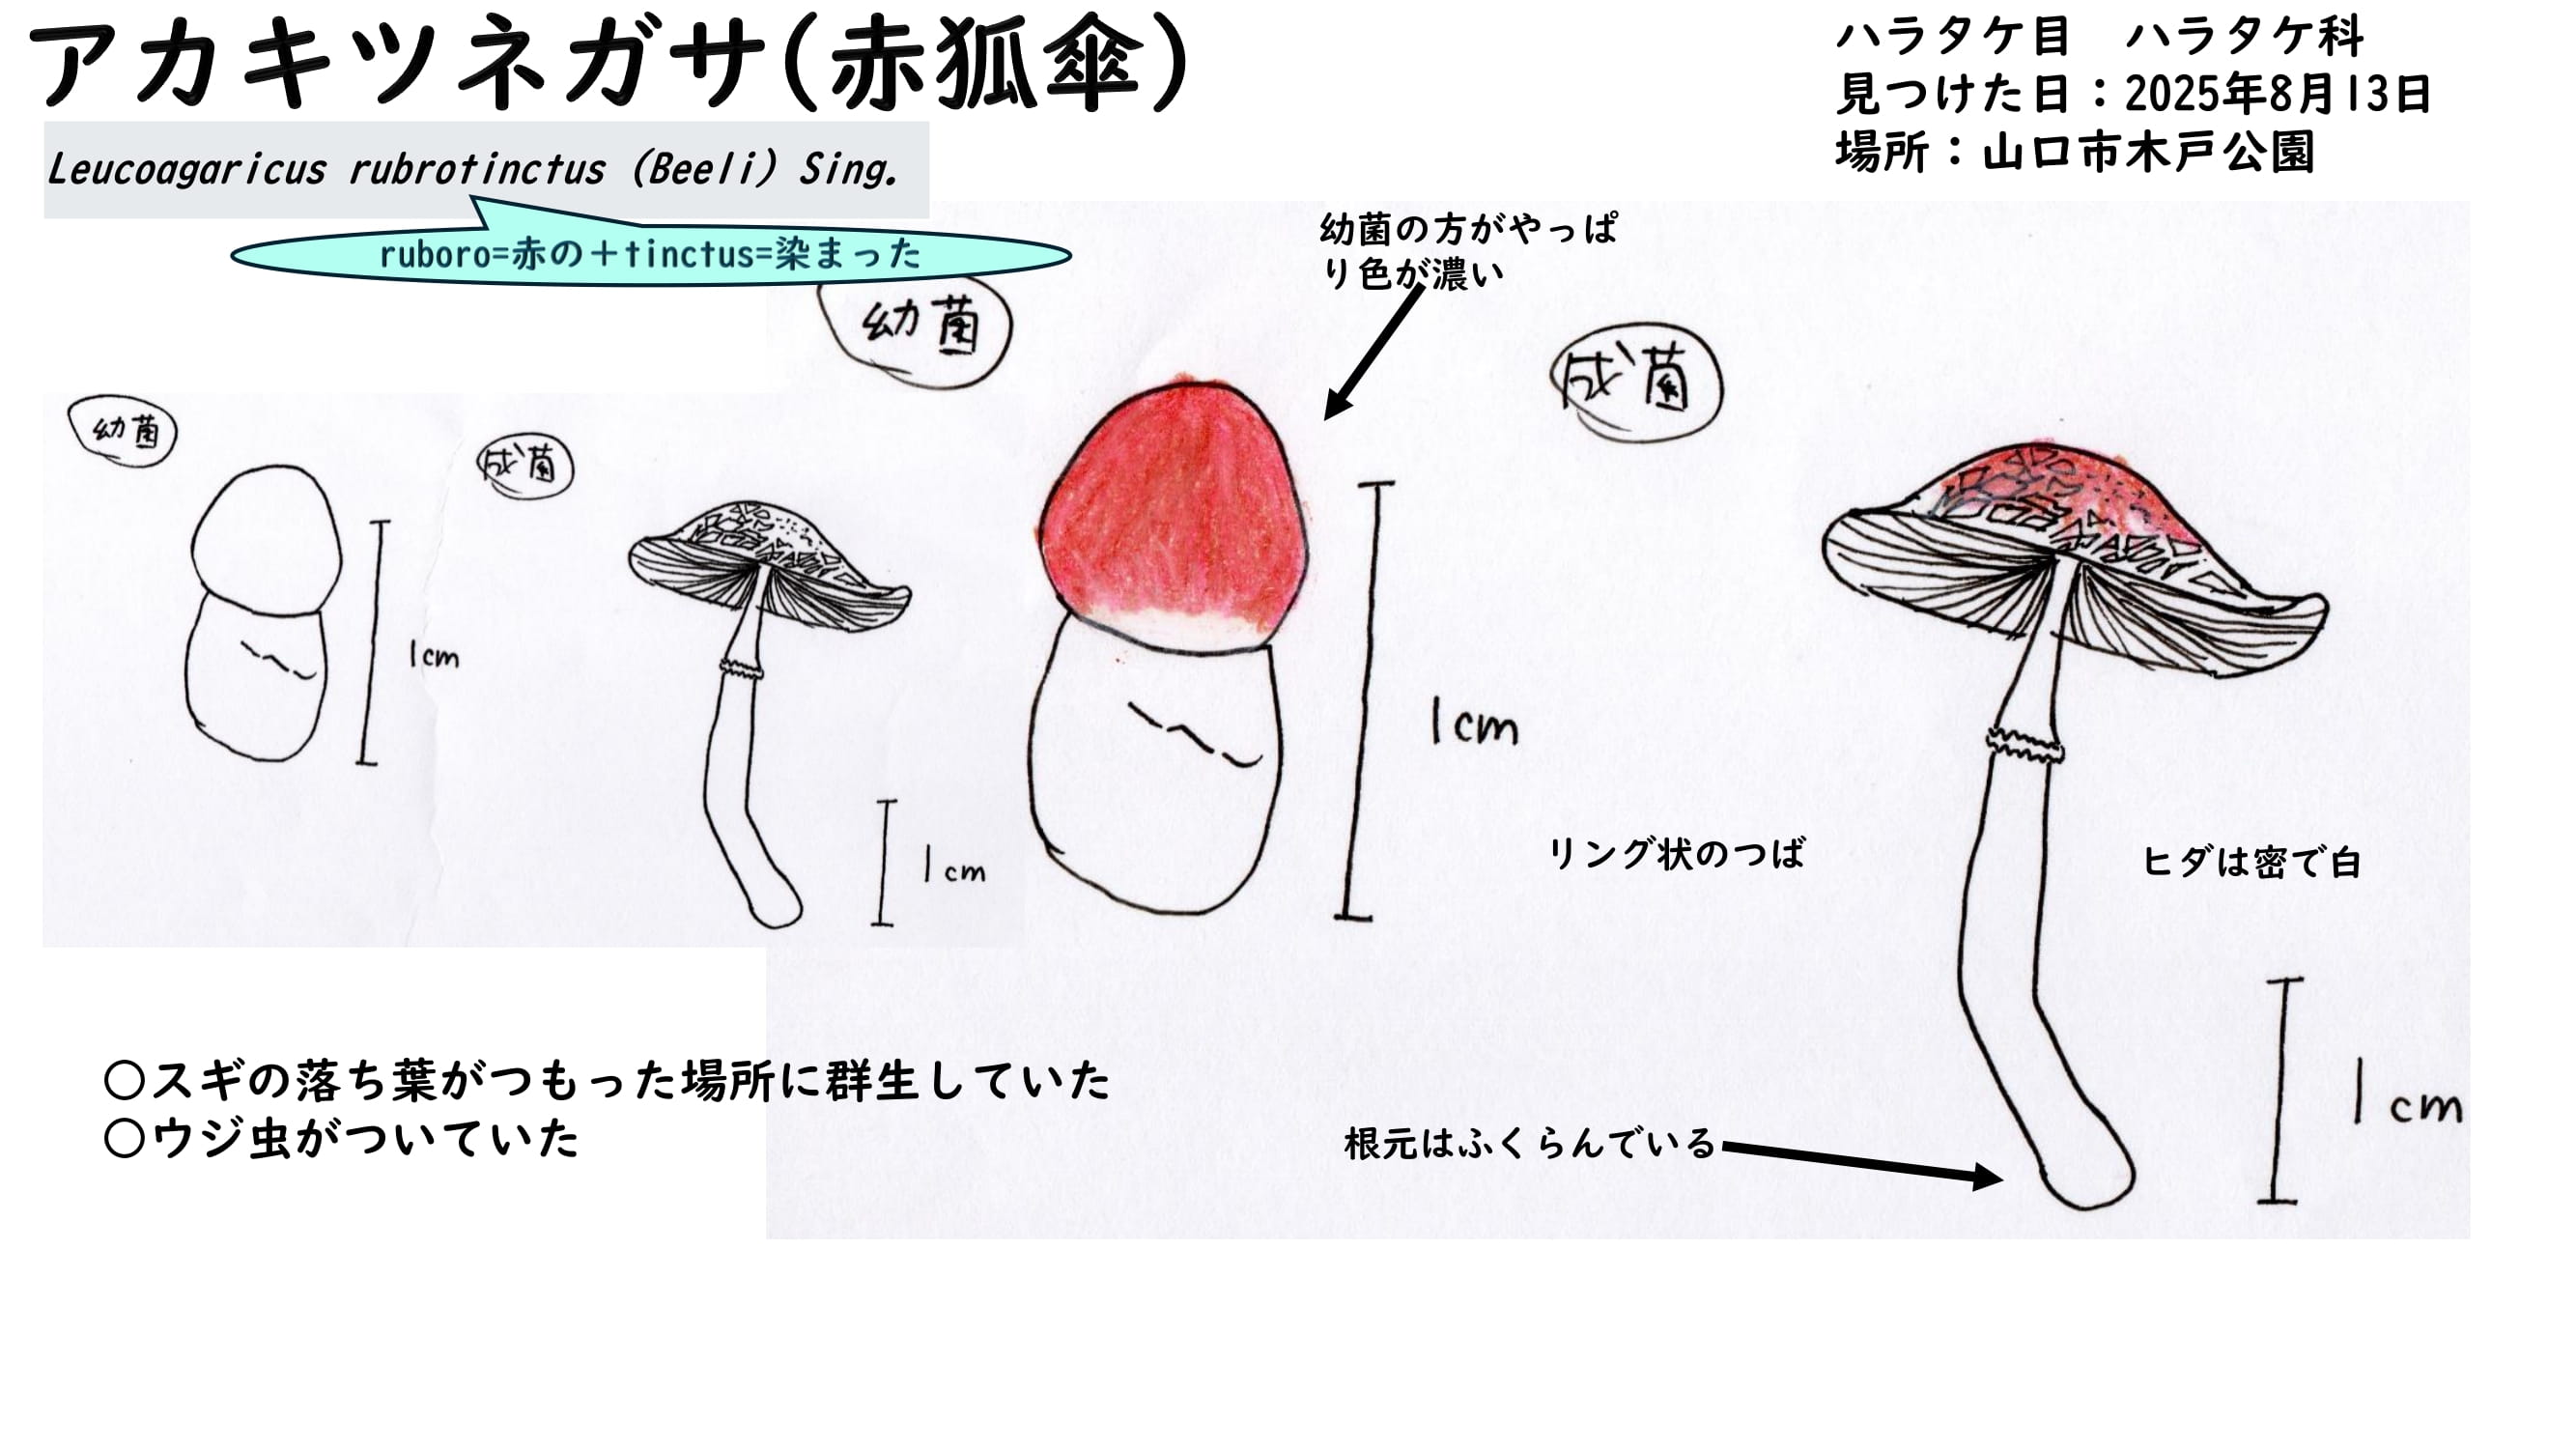 アカキツネガサ(赤狐傘)
ハラタケ目　ハラタケ科
見つけた日：2025年8月13日
場所：山口市木戸公園
Leucoagaricus rubrotinctus (Beeli) Sing.
ruboro=赤の＋tinctus=染まった
幼菌の方がやっぱ
り色が濃い
幼菌
成菌
幼菌
成菌
1cm
1cm
1cm
リング状のつば
ヒダは密で白
1cm
○スギの落ち葉がつもった場所に群生していた
○ウジ虫がついていた
根元はふくらんでいる